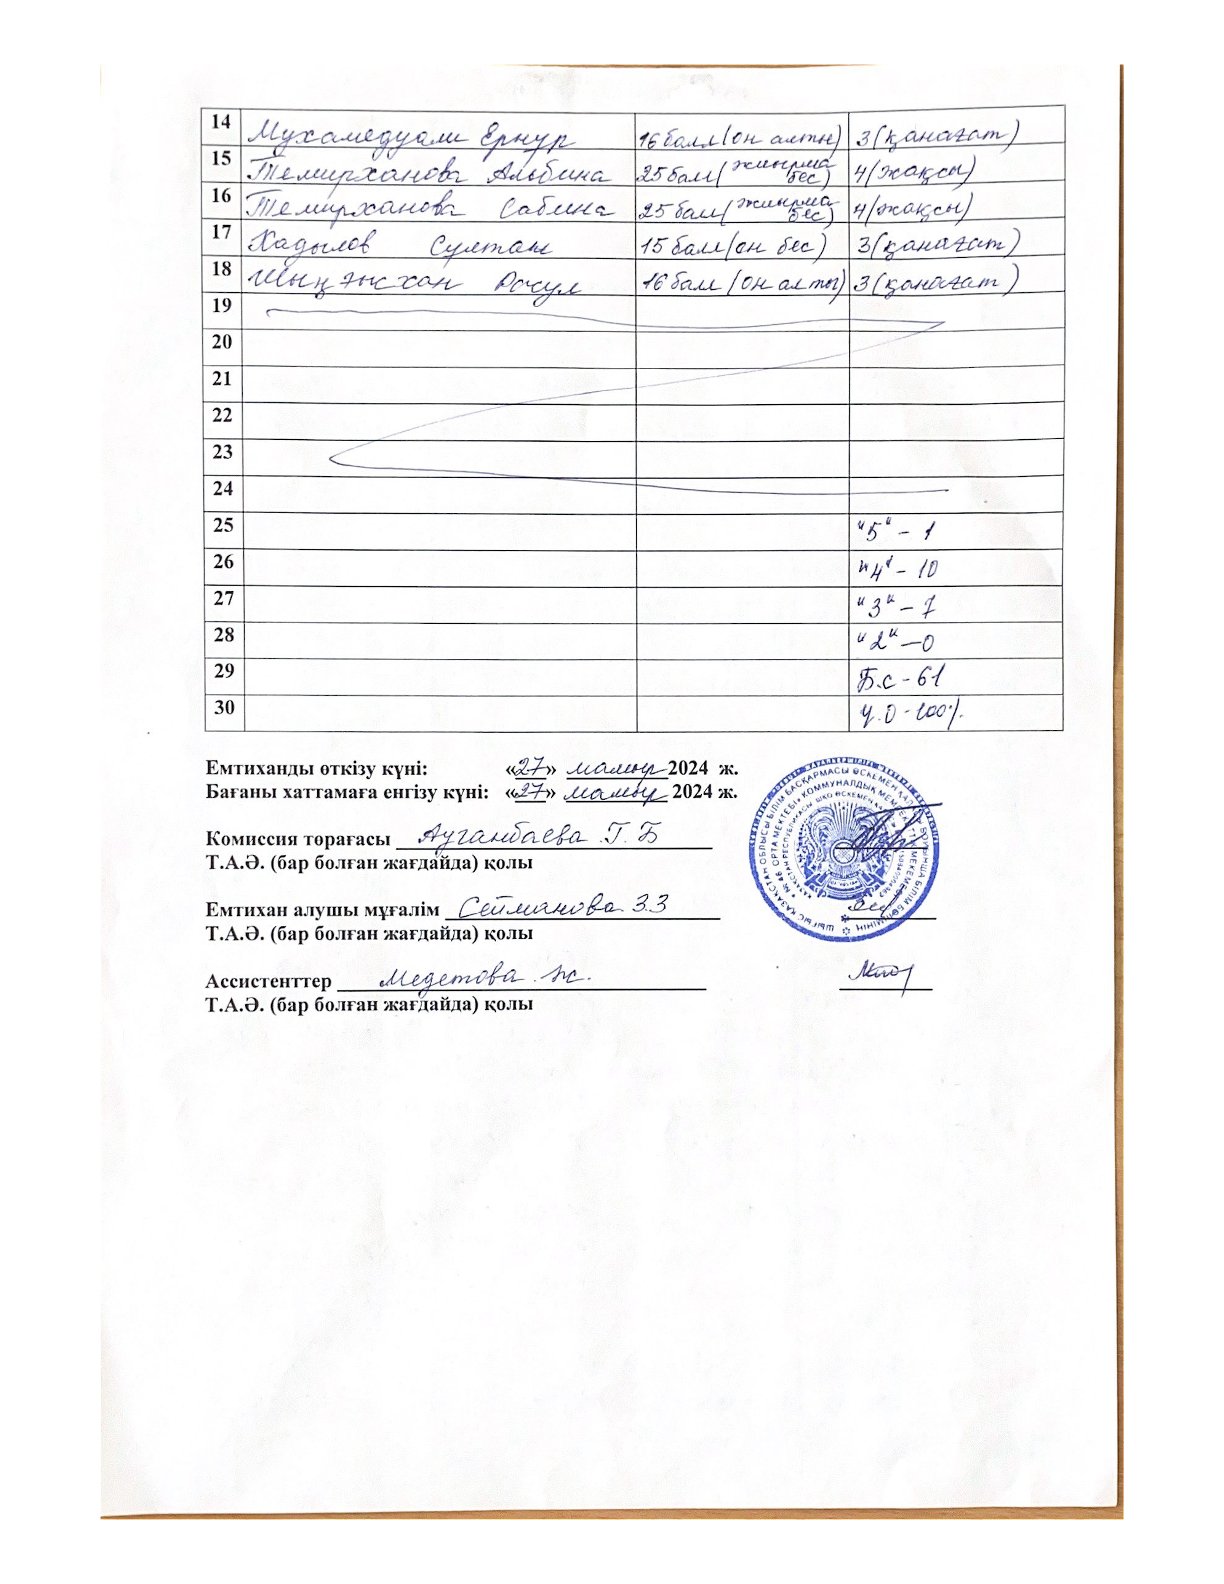 14 Мухамедуали Ернур 16 балл (он алты) 3 (қанағат)
15 Темирханова Альбина 25 балл (жиырма бес) 4 (жақсы)
16 Темирханова Сабина 25 балл (жиырма бес) 4 (жақсы)
17 Хадылов Султан 15 балл (он бес) 3 (қанағат)
18 Шыңғысхан Расул 16 балл (он алты) 3 (қанағат)
19
20
21
22
23
24
25 "5" - 1
26 "4" - 10
27 "3" - 7
28 "2" - 0
29 Б.с - 61
30 У.О - 100%
Емтиханды өткізу күні: «27» мамыр 2024 ж.
Бағаны хаттамаға енгізу күні: «27» мамыр 2024 ж.
Комиссия торағасы Ауганбаева Г.Б
Т.А.Ә. (бар болған жағдайда) қолы
Емтихан алушы мұғалім Сейманова З.З
Т.А.Ә. (бар болған жағдайда) қолы
Ассистенттер Медетова Ж.
Т.А.Ә. (бар болған жағдайда) қолы